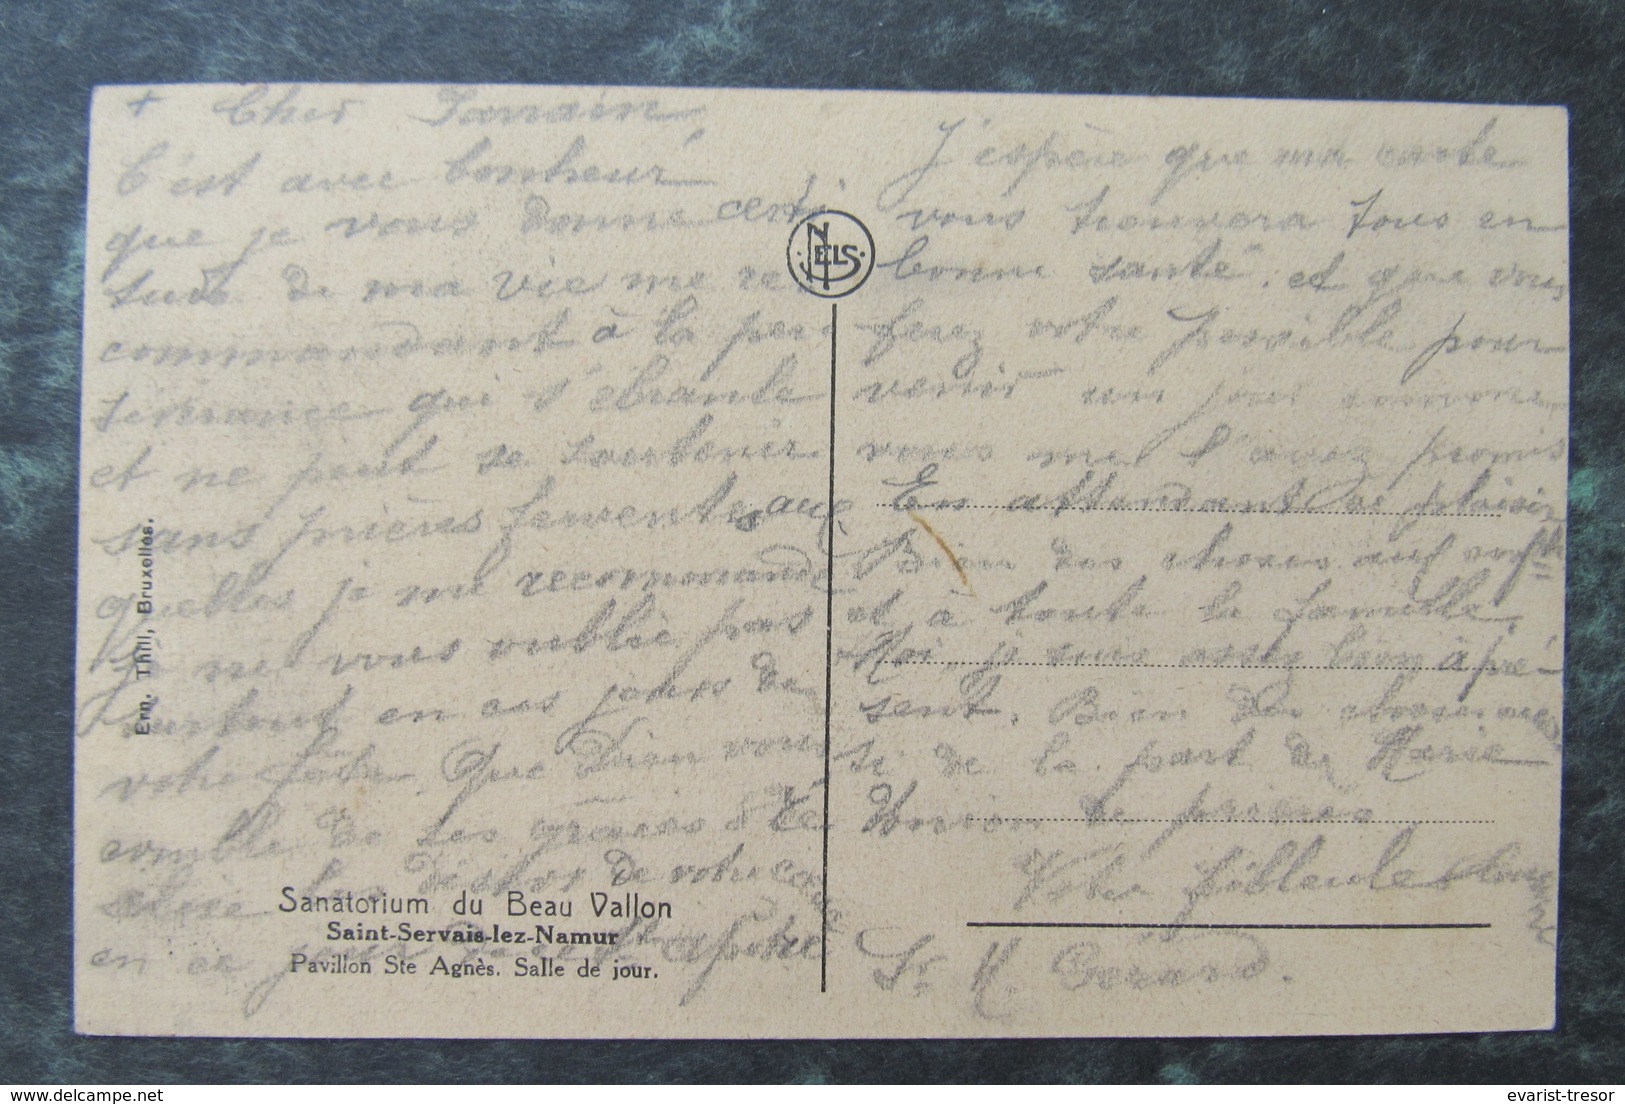 + Cher
C'est avec bonheur
que je vous donne certi
tude de ma vie me re
commandant à la per
sévérance qui s'ébranle
et ne peut se soutenir
sans prières ferventes aux
quelles je me recommande
Je ne vous oublie pas
surtout en ces jours de
votre fête. Que Dieu vous
comble de ses grâces
de votre
en ce jour
J'espère que ma carte
vous trouvera tous en
bonne santé. et que vous
ferez votre possible pour
venir un jour comme
vous me l'avez promis
En attendant ce plaisir
Bien des choses aux
et à toute la famille,
Moi, je suis assez bien à pré-
sent. Bien des choses aus
si de la part de Marie
Union de prières
Votre filleule
Sr M. Gérard.
NELS
Ern. Thill, Bruxelles.
Sanatorium du Beau Vallon
Saint-Servais-lez-Namur
Pavillon Ste Agnès. Salle de jour.
evarist-tresor